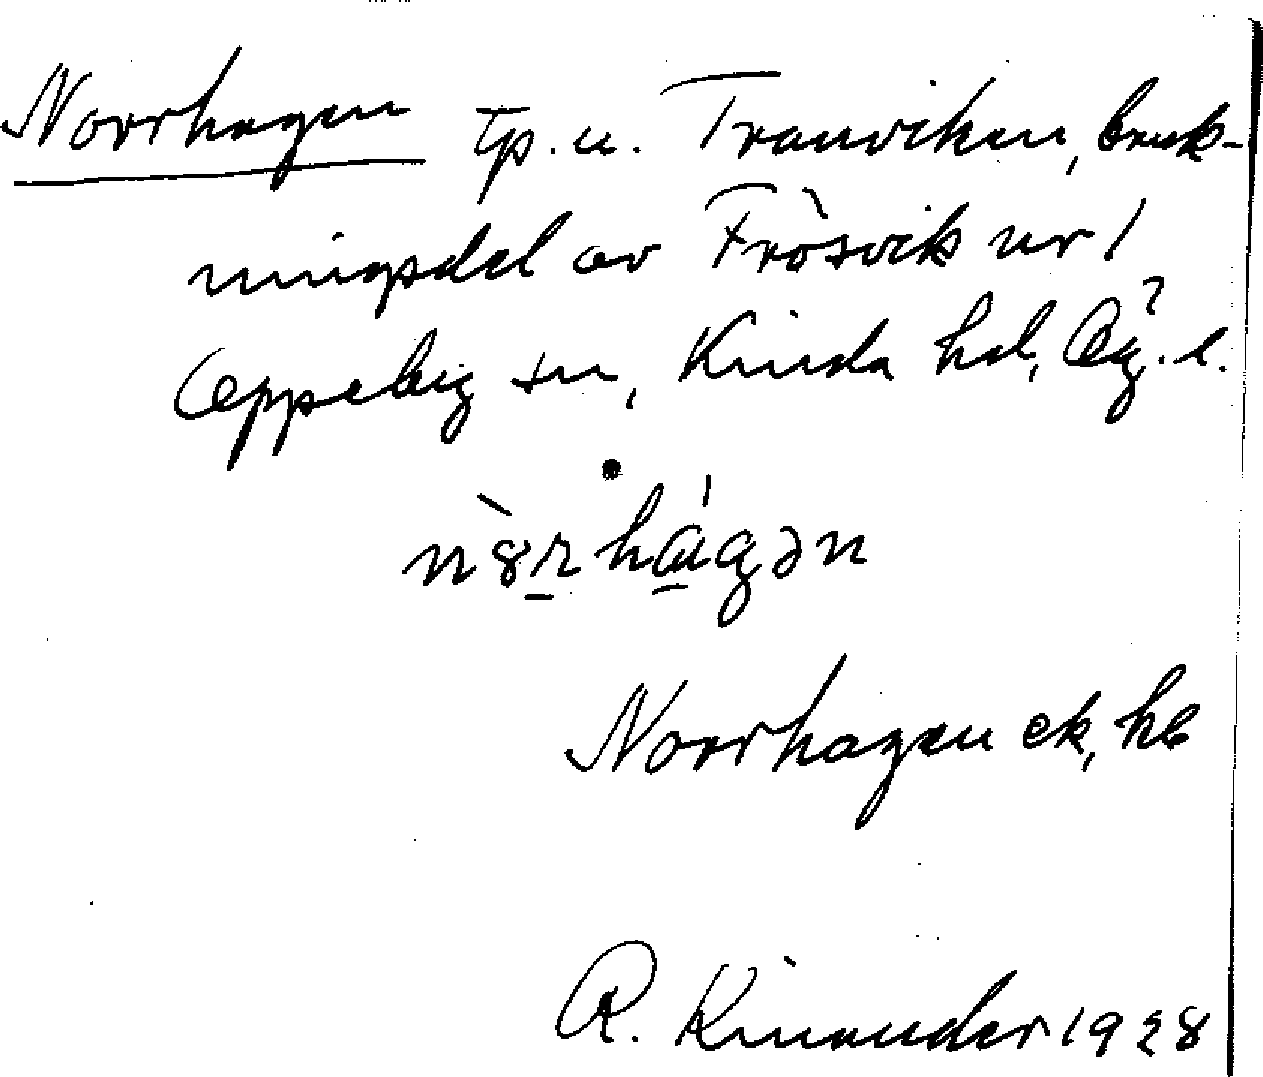 Norrhagen Tp. u. Tranviken, bruk-
ningsdel av Frösvik nr 1
Oppeby sn, Kinda hd, Ög. l.
Norrhagen ek, hb
R. Kinander 1928